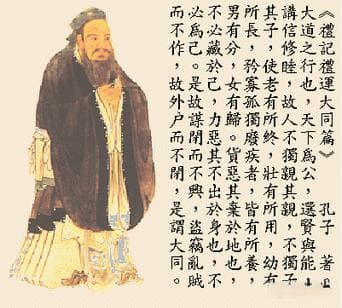 《禮記禮運大同篇》 孔子 著
大道之行也，天下為公，選賢與能，
講信修睦，故人不獨親其親，不獨子
其子，使老有所終，壯有所用，幼有
所長，矜寡孤獨廢疾者，皆有所養，
男有分，女有歸。貨惡其棄於地也，
不必藏於己，力惡其不出於身也，不
必為己。是故謀閉而不興，盜竊亂賊
而不作，故外户而不閉，是謂大同。